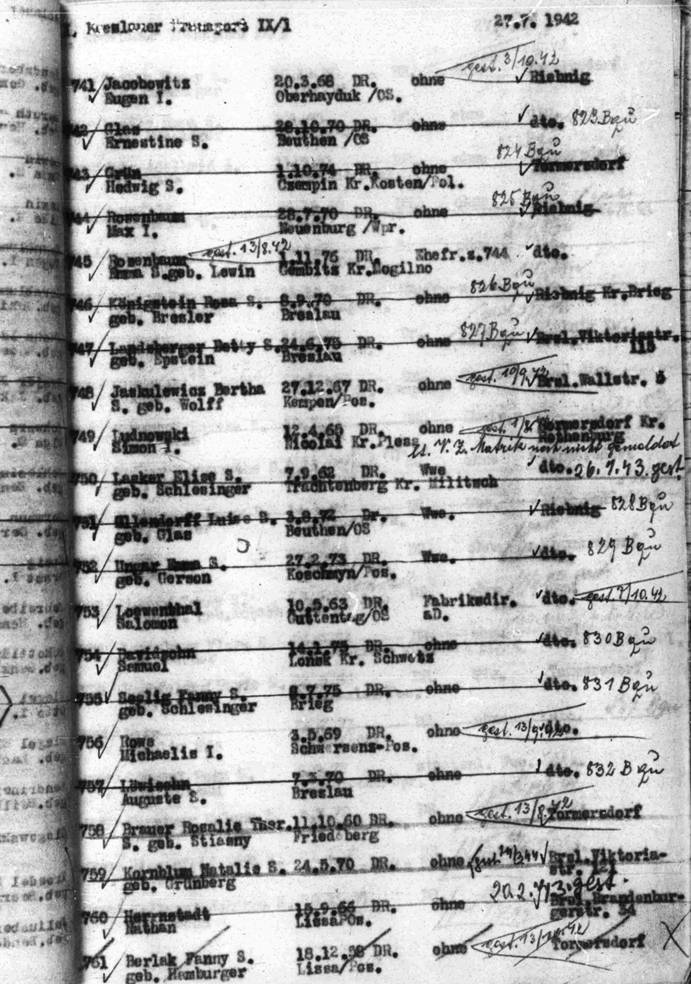 Breslauer Transport IX/1 27.7. 1942
741 Jacobowitz 20.3.68 DR. ohne gest. 3/10.42 Riebnig
Eugen I. Oberhayduk /OS.
742 Glas 28.10.70 DR. ohne dto. 823 Bqu
Ernestine S. Beuthen /OS
743 Grün 1.10.74 DR. ohne 824 Bqu Tormersdorf
Hedwig S. Czempin Kr.Kosten/Pol.
744 Rosenbaum 28.7.70 DR. ohne 825 Bqu Riebnig
Max I. Neuenburg /Wpr.
745 Rosenbaum gest. 13/8.42 1.11.76 DR. Ehefr.z.744 dto.
Emma S.geb. Lewin Gembitz Kr.Mogilno
746 Königstein Rosa S. 8.9.70 DR. ohne 826 Bqu Riebnig Kr.Brieg
geb. Bresler Breslau
747 Landsberger Betty S. 24.6.75 DR. ohne 827 Bqu Brsl.Viktoriastr.
geb. Epstein Breslau 118
748 Jaskulewicz Bertha 27.12.67 DR. ohne gest. 10/9.42 Brsl.Wallstr. 5
S. geb. Wolff Kempen/Pos.
749 Ludnowski 12.4.65 DR. ohne gest. Tormersdorf Kr.
Simon I. Nicolai Kr.Pless Rothenburg
lt. V. Z. Matrik noch nicht gemeldet
750 Lasker Elise S. 7.9.62 DR. Wwe dto. 26.1.43. gest.
geb. Schlesinger Trachtenberg Kr. Militsch
751 Ellendorff Luise S. 3.8.72 Dr. Wwe. Riebnig 828 Bqu
geb. Glas Beuthen/OS
752 Ungar Emma S. 27.2.73 DR. Wwe. dto. 829 Bqu
geb. Gerson Koschmyn/Pos.
753 Loewenthal 10.5.63 DR. Fabriksdir. dto. gest. 7/10.42
Salomon Guttentag/OS aD.
754 Davidsohn 14.1.75 DR. ohne dto. 830 Bqu
Samuel Lonsk Kr. Schwetz
755 Seelig Fanny S. 6.7.75 DR. ohne dto. 831 Bqu
geb. Schlesinger Brieg
756 Rows 3.5.69 DR. ohne gest. 13/9.42 dto.
Michaelis I. Schwersenz-Pos.
757 Löwisohn 7.3.70 DR. ohne dto. 832 Bqu
Auguste S. Breslau
758 Brauer Rosalie Ther. 11.10.60 DR. ohne gest. 13/8.42 Tormersdorf
S. geb. Stiasny Friedeberg
759 Kornblum Natalie S. 24.5.70 DR. ohne Brsl.Viktoria-
geb. Grünberg str.
20.2.43. gest.
760 Herrnstadt 15.9.66 DR. ohne Brsl.Brandenbur-
Nathan LissaPOs. gerstr. 54
761 Berlak Fanny S. 18.12.58 DR. ohne gest. 13/10.42 Tormersdorf X
geb. Hamburger Lissa/Pos.